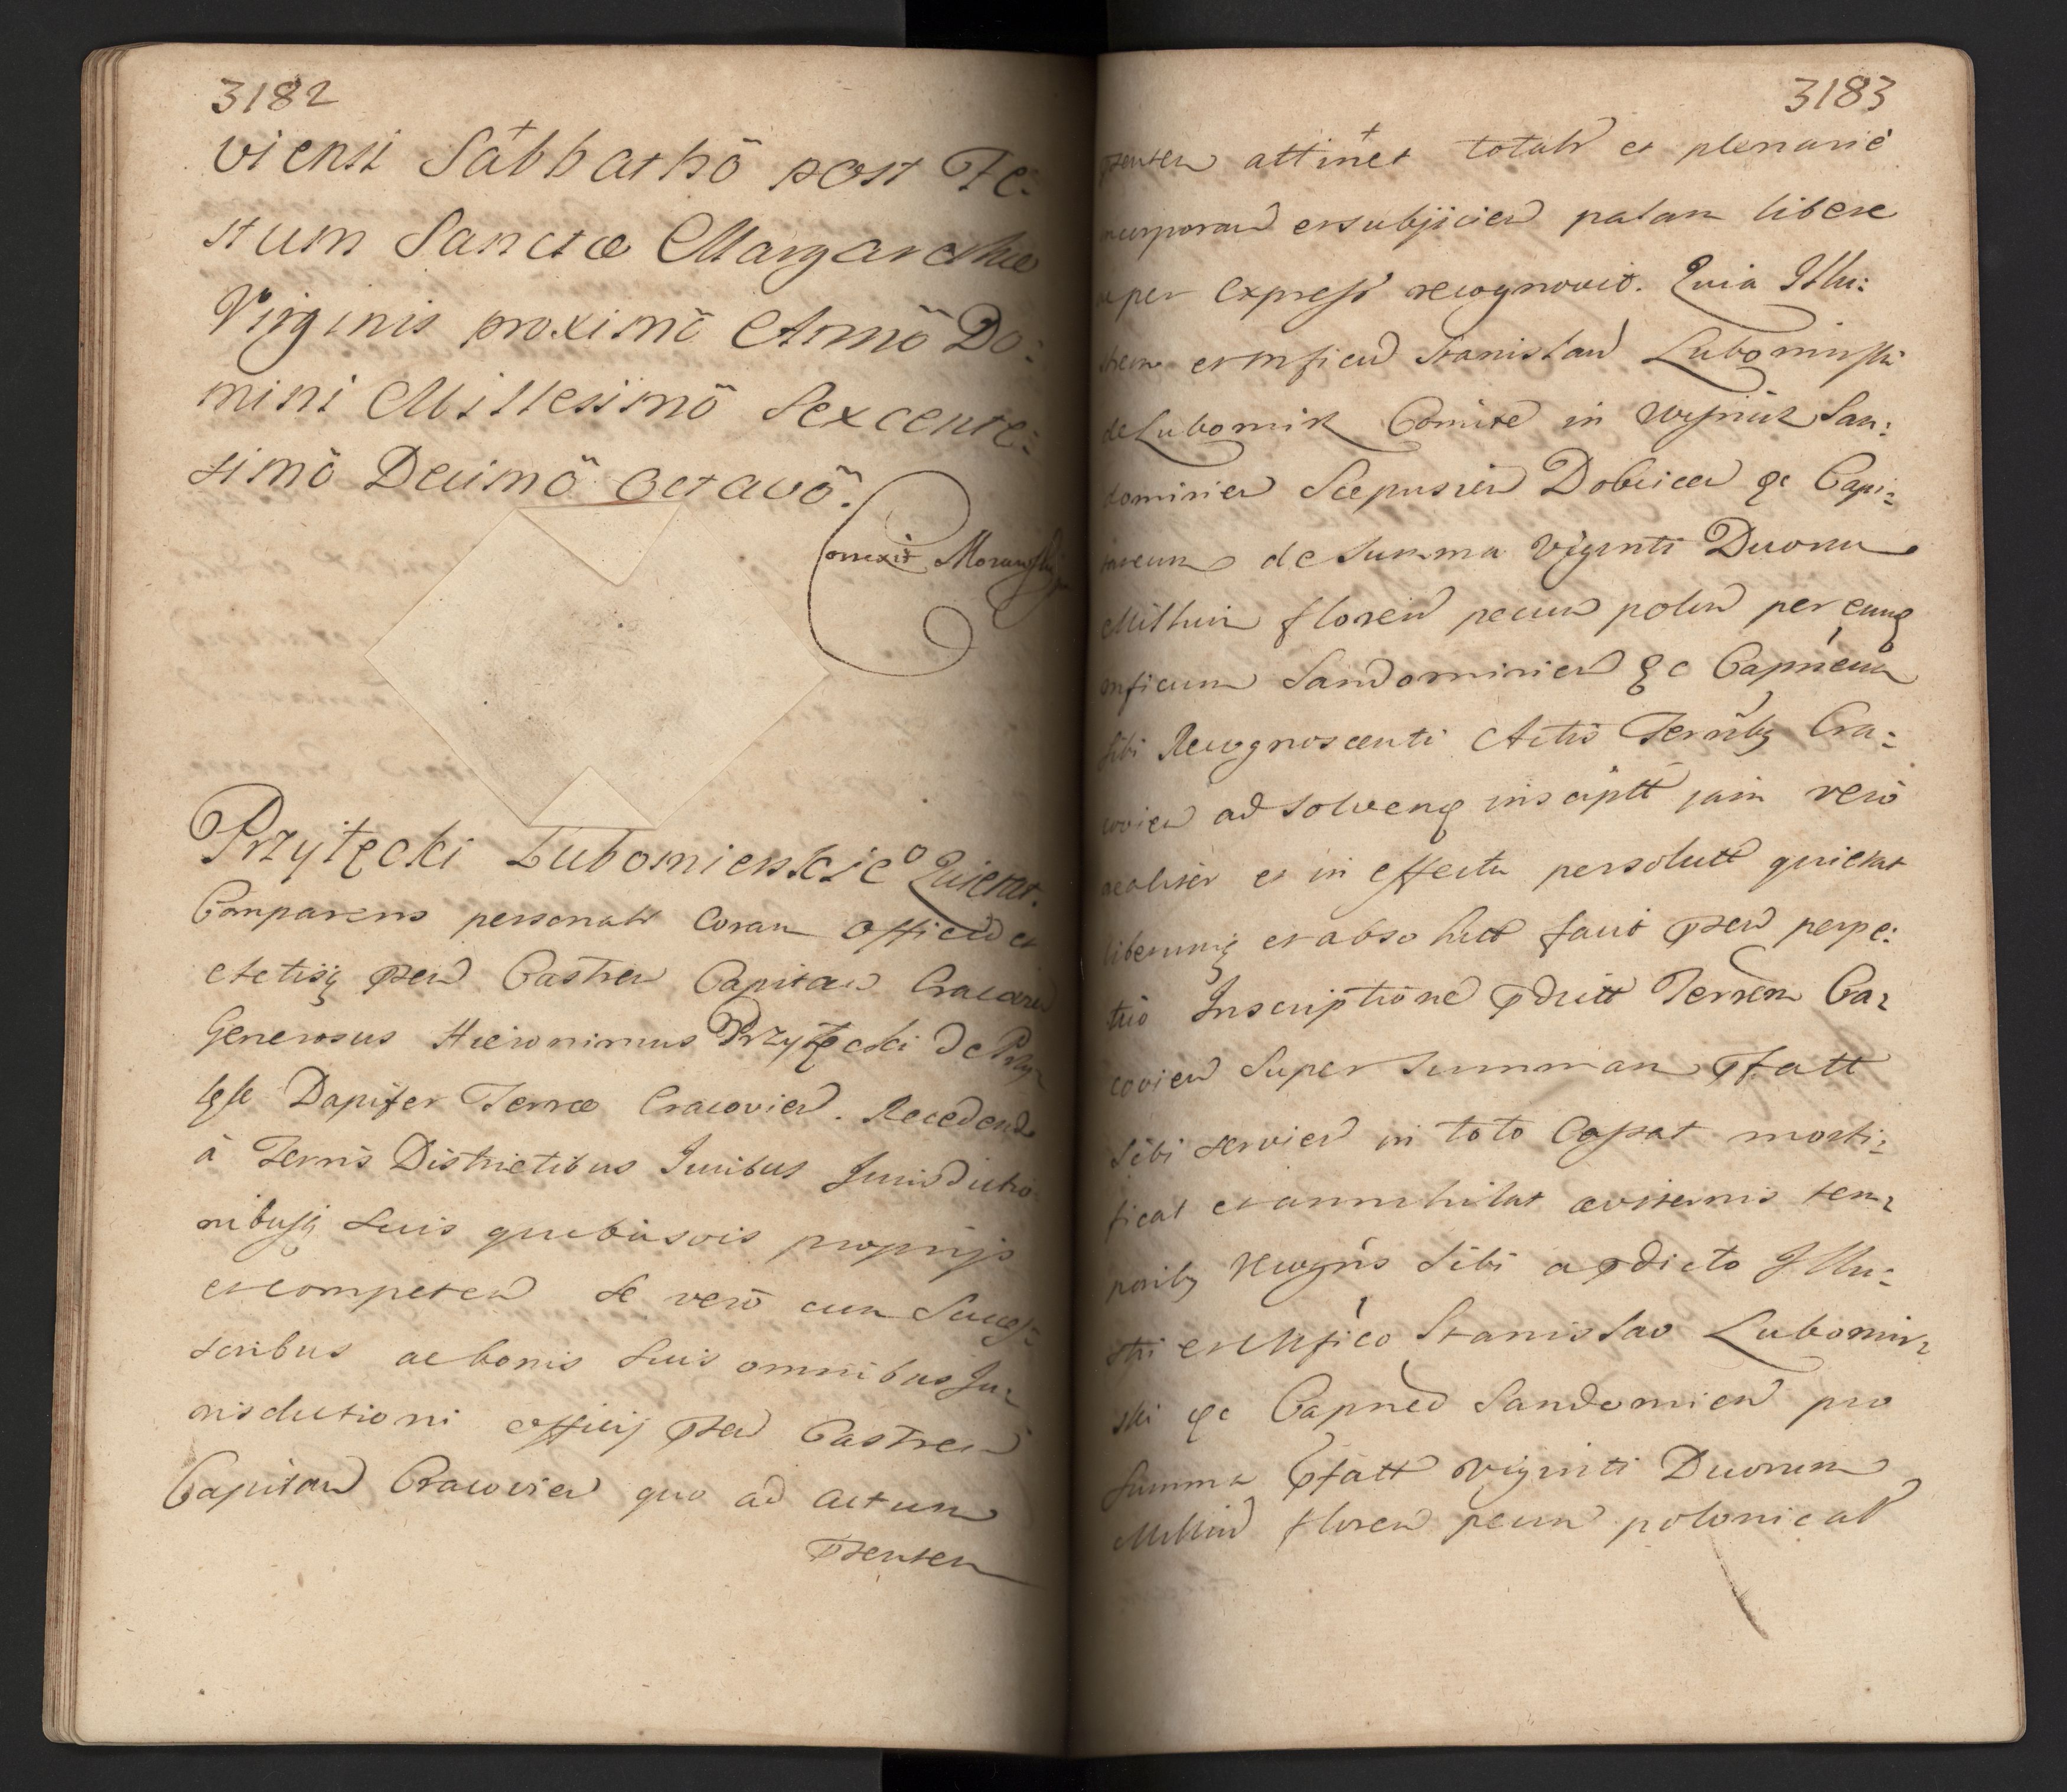 3182
viensi Sabbathō post Fe:
stum Sanctæ Margarethæ
Virginis proximō Annō Do:
mini Millesimō Sexcente:
simō Decimō octavō.
Correxit Morawski
Przyłęcki Lubomierskie° Quietat.
Comparens personalr Coram Officio et
Actisq pñti Castren Capitan Cracovien
Generosus Hieronimus Przyłęcki de Przy
łęk Dapifer Terræ Cracovien. Recedendo
à Terris Districtibus Juribus Jurisdictio
nibusq suis quibusvis proprijs
et competen se verō cum Succes:
soribus ac bonis suis omnibus Ju:
risdictioni officij pñti Castren
Capitan Cracovien quo ad actum
pñtem
3183
pñtem attinet totalr et plenariè
incorporan et subijicien palam libere
ac per express recognovit. Quia Illu:
strem et Mficum Stanislaum Lubomirski
de Lubomirk Comite in Wisnicz San:
domirien Scepusien Dobczicen &c Capi:
taneum de Summa Viginti Duorum
Millium floren pecun polon per eunq
Mficum Sandomirien &c Capneum
sibi Recognoscenti Actis Terribq Cra:
covien ad solvenq inscriptt jam verò
realiter et in effectu persolutt quietat
liberumq et absolutt facit pñti perpe:
tuò Inscriptione pdictt Terren Cra:
covien super summam pfatt
sibi servien in toto Cassat morti:
ficat et annihilat æviternis tem:
poribq Recogñs sibi a pdicto Illu:
stri et Mfico Stanislao Lubomir:
ski &c Capneo Sandomirien pro
Summa pfatt viginti Duorum
Millium floren pecun polonicalr